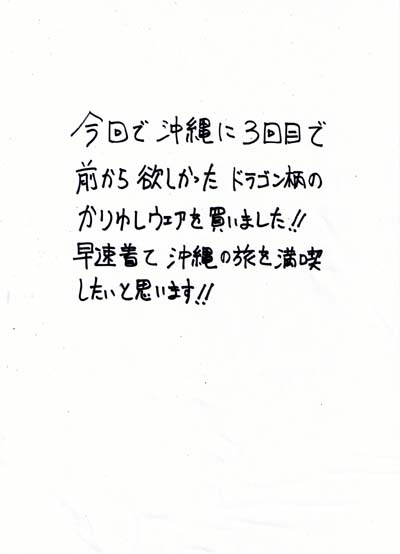 今回で沖縄に3回目で
前から欲しかったドラゴン柄の
かりゆしウェアを買いました!!
早速着て沖縄の旅を満喫
したいと思います!!